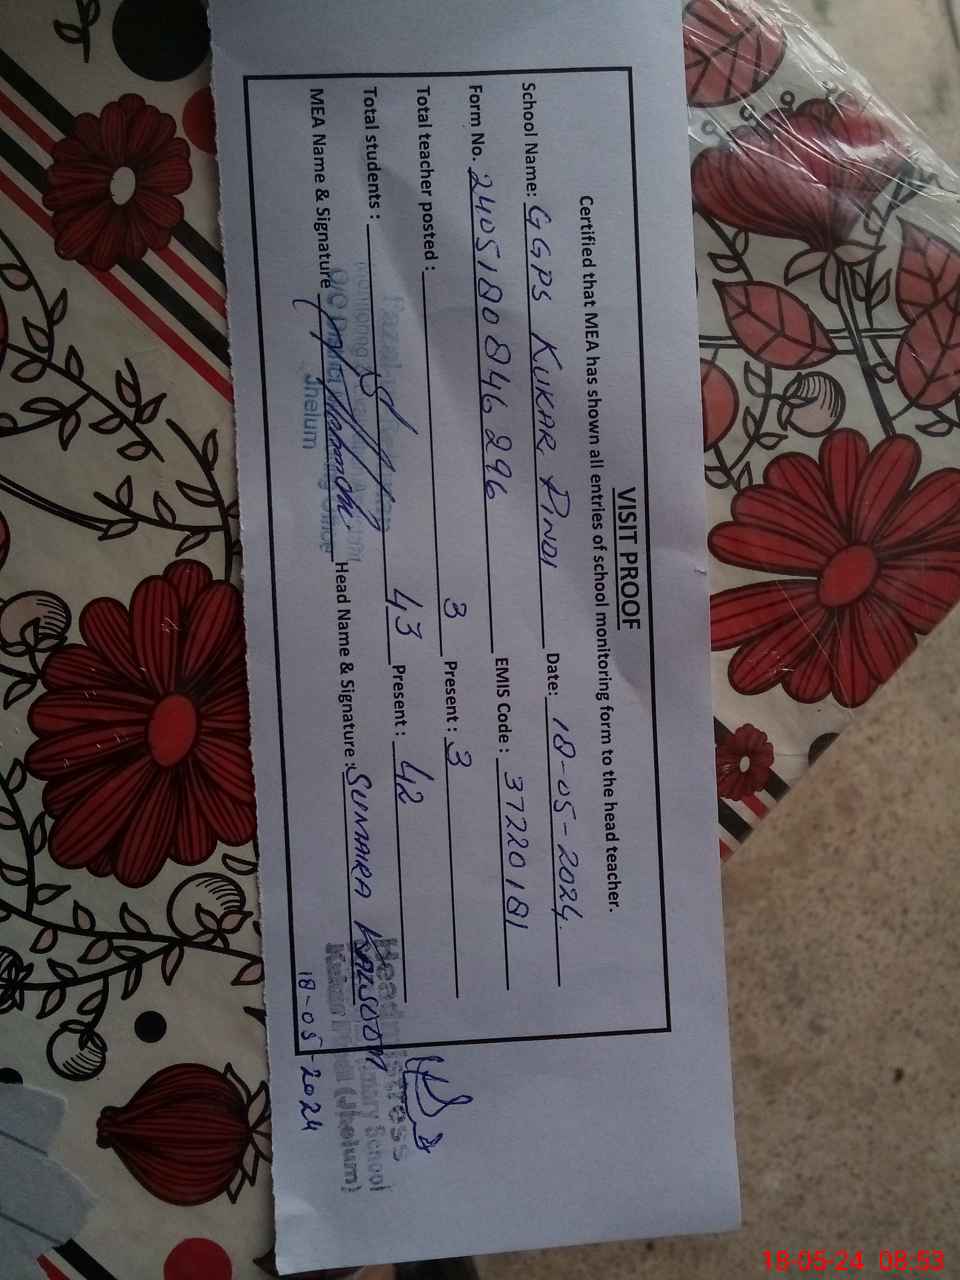 VISIT PROOF
Certified that MEA has shown all entries of school monitoring form to the head teacher.
School Name: GGPS KUKAR PINDI Date: 18-05-2024.
Form No. 240518084 6296 EMIS Code : 37220181
Total teacher posted : 3 Present : 3
Total students : 43 Present : 42
MEA Name & Signature Head Name & Signature : SUMAIRA KALSOOM
Jhelum
Headmistress
School
(Jhelum)
18-05-2024
18-05-24 08:53